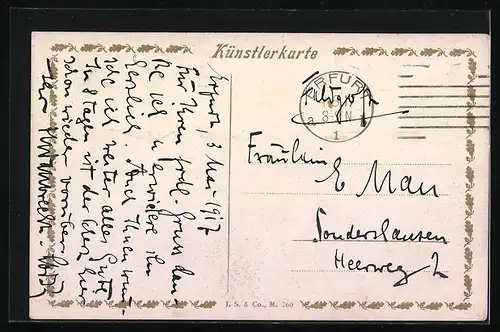 Künstlerkarte
Erfurt, 3 Mai 1917
Für Ihren frdl. Gruss dan-
ke ich u. erwidere ihn
herzlich. Auch Ihnen wün-
sche ich weiter alles Gute.
In 8 Tagen ist der hier
schon wieder vorüber.
Ihr
ERFURT
8-9 N
a
1
Feldpost
Fräulein
E Mau
Sondershausen
Heerweg 2
J. S. & Co., M. 260